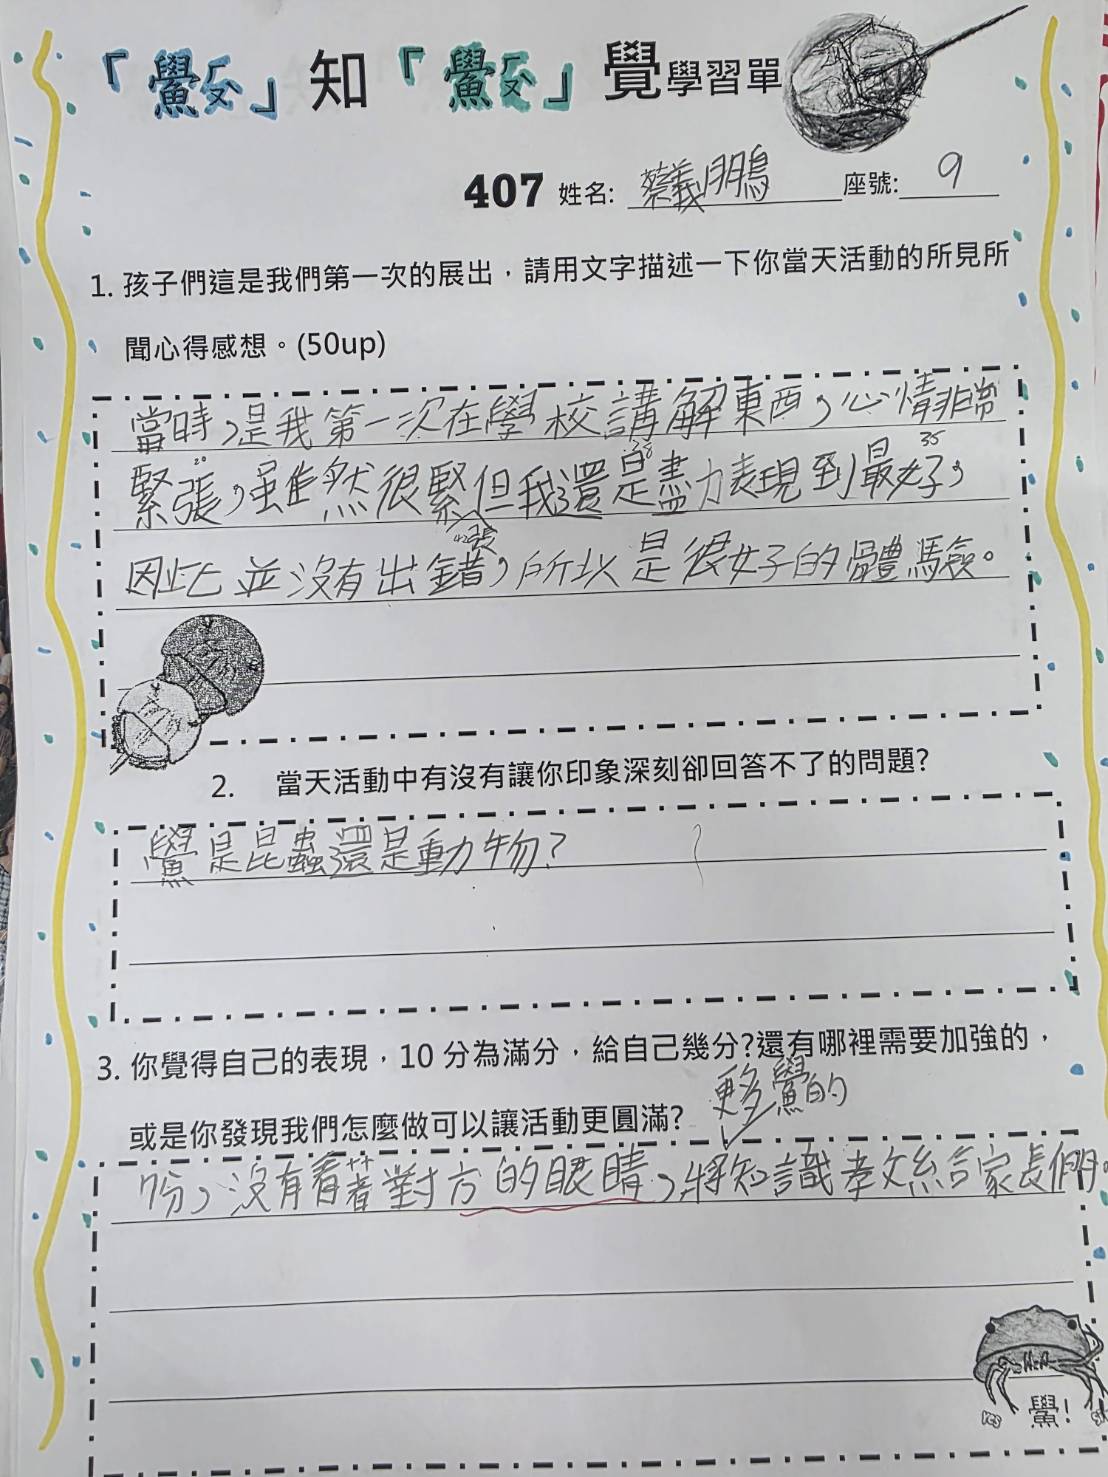 「鱟殳」知「鱟殳」覺學習單
407 姓名: 蔡義鵬 座號: 9
1. 孩子們這是我們第一次的展出，請用文字描述一下你當天活動的所見所
聞心得感想。(50up)
當時，是我第一次在學校講解東西，心情非常
緊張，雖然很緊但我還是盡力表現到最好，
20 28 35
張
因此並沒有出錯，所以是很好子的體驗。
2. 當天活動中有沒有讓你印象深刻卻回答不了的問題?
鱟是昆蟲還是動物?
3. 你覺得自己的表現，10 分為滿分，給自己幾分?還有哪裡需要加強的，
或是你發現我們怎麼做可以讓活動更圓滿?
更多鱟的
7分，沒有看著對方的眼睛，將知識教給家長們。
yes
鱟!